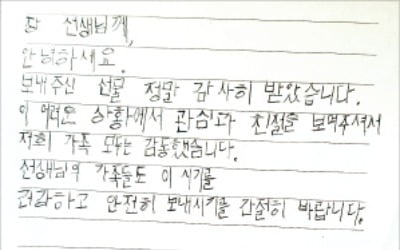 담 선생님께,
안녕하세요.
보내주신 선물 정말 감사히 받았습니다.
이 어려운 상황에서 관심과 친절을 보여주셔서
저희 가족 모두는 감동했습니다.
선생님의 가족들도 이 시기를
건강하고 안전히 보내시기를 간절히 바랍니다.